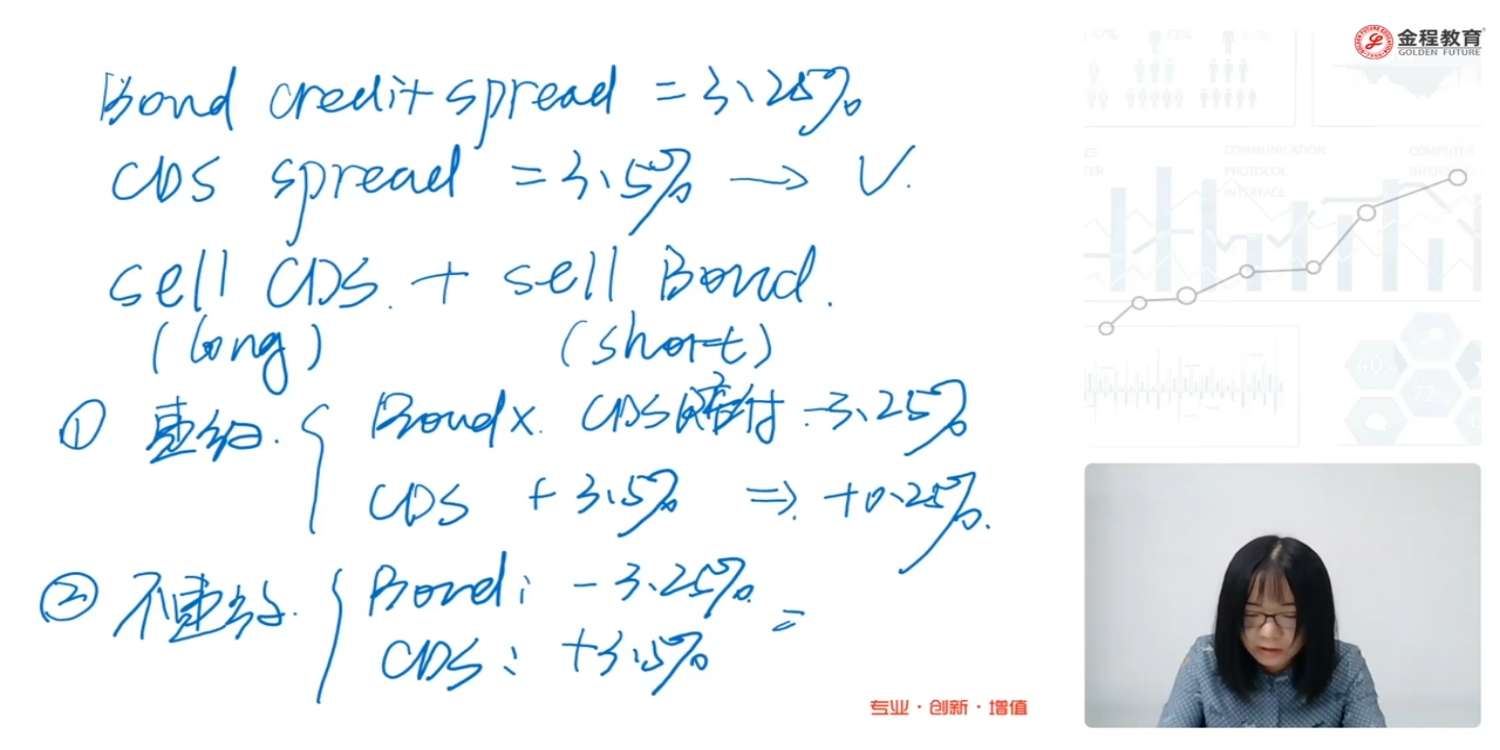 金程教育
GOLDEN FUTURE
Bond credit spread = 3.25%
CDS spread = 3.5% → V.
sell CDS. + sell Bond.
(long) (short)
① 违约. { Bond x. CDS赔付 -3.25%
CDS +3.5% ⇒ +0.25%.
② 不违约. { Bond: -3.25%
CDS: +3.5% =
专业·创新·增值
COMMUNICATION
PROTOCOL
INTERFACE